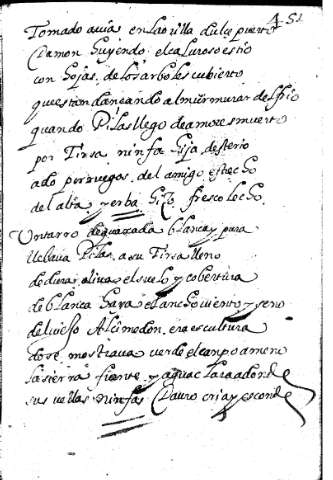 51
Tomado avia en la orilla dulçe puerto
Damon huyendo el caluroso estio
con hojas de los arboles cubierto
que estan dançando al murmurar del rio
quando Pilas llego de amores muerto
por Tirsa ninfa hija deste rio
a do por ruegos del amigo estrecho
del alta yerba hizo fresco lecho
Un tarro de quaxada blanca y pura
llebava Pilas a su Tirsa lleno
de dura oliva el suelo y cobertura
de blanca haya el ancho vientre y seno
del viejo Alcimedon era escultura
dose mostrava verde el campo ameno
la sierra fuente y agua clara adonde
sus bellas ninfas Dauro cria y esconde